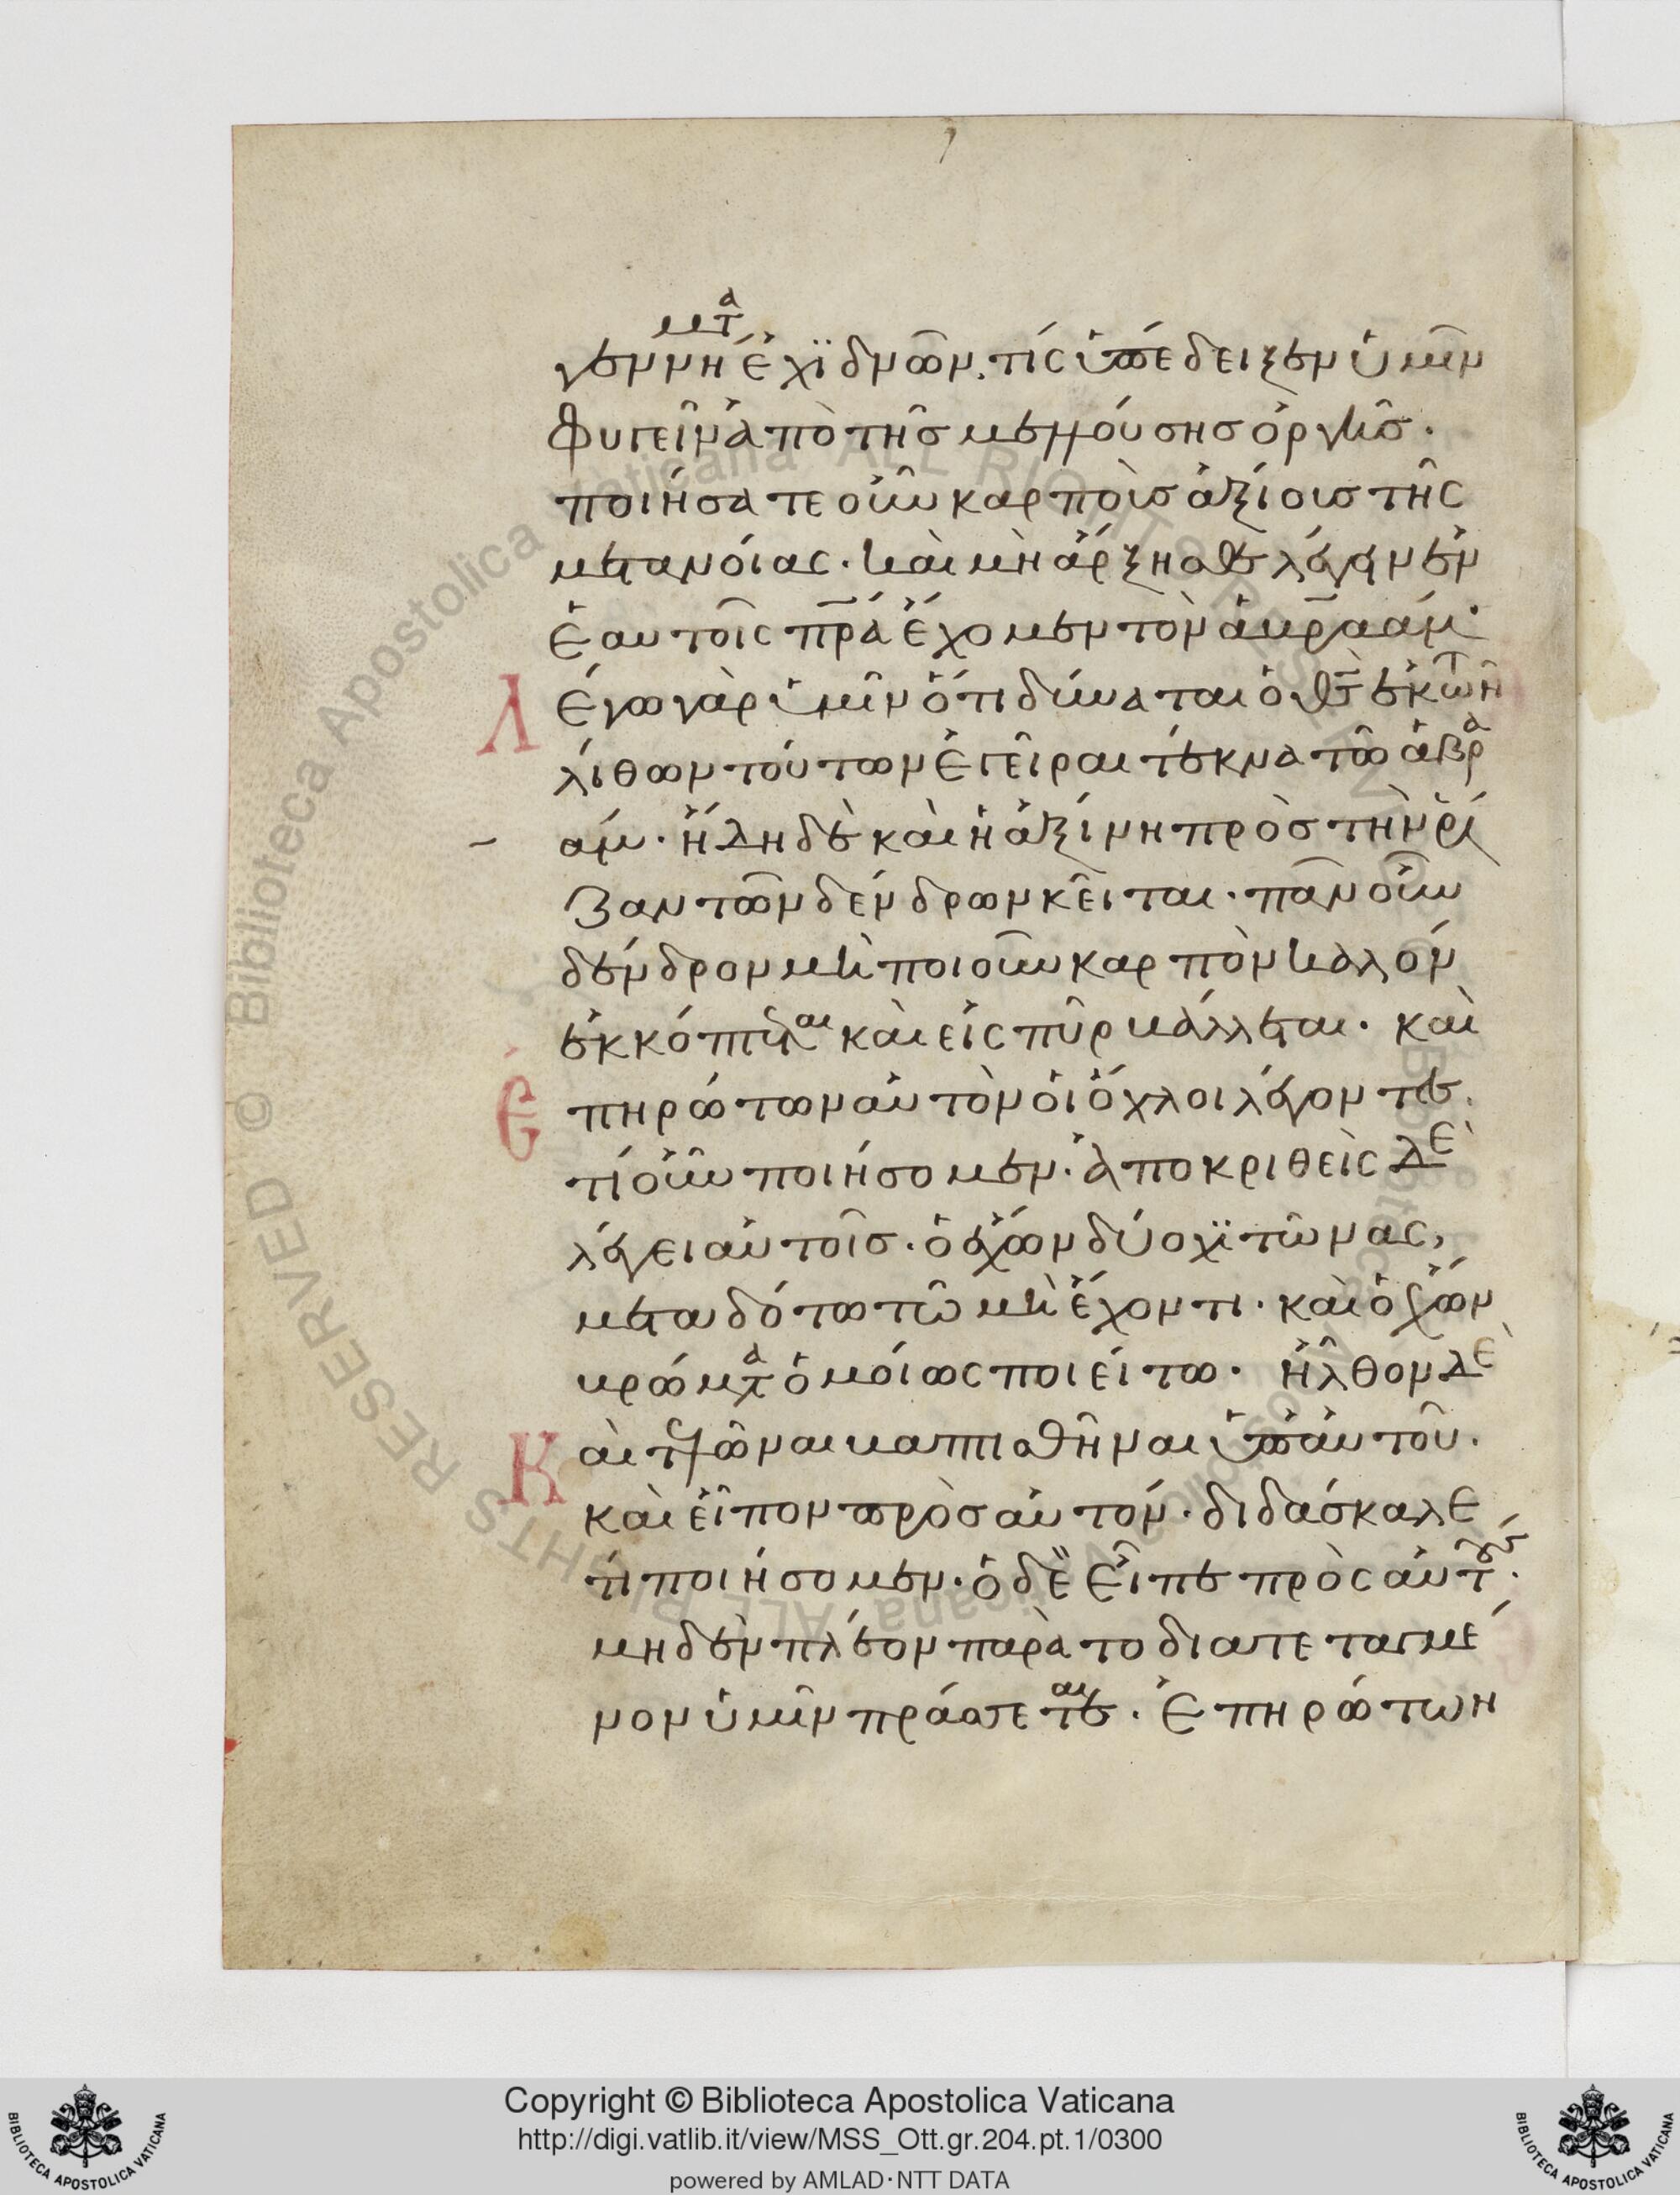 μτα
γεννη ἐχϊδνῶν. τίς ὑπέδειξεν ὑμῖν
φυγεῖν ἀπὸ τῆς μελλούσης ὀργῆς.
ποιήσατε οὖν καρποὺς ἀξίους τῆς
μετανοίας. καὶ μὴ ἄρξησθε λέγειν ἐν
ἑαυτοῖς πρ̅α ἔχομεν τὸν ἀβραάμ.
Λέγω γὰρ ὑμῖν ὅτι δύναται ὁ θς̅ ἐκ τῶν
λίθων τούτων ἐγεῖραι τέκνα τῶ ἀβρα
αμ. ἤδη δὲ καὶ ἡ ἀξίνη πρὸς τὴν ῥί
ζαν τῶν δένδρων κεῖται. πᾶν οὖν
δένδρον μὴ ποιοῦν καρπὸν καλὸν
ἐκκόπτεται καὶ εἰς πῦρ βάλλεται. καὶ
Ἐπηρώτων αὐτὸν οἱ ὄχλοι λέγοντες.
τί οὖν ποιήσομεν. ἀποκριθεὶς δὲ
λέγει αὐτοῖς. ὁ ἔχων δύο χϊτῶνας,
μεταδότω τῶ μὴ ἔχοντι. καὶ ὁ ἔχων
βρώματα ὁμοίως ποιείτω. ἦλθον δὲ
Καὶ τελῶναι βαπτισθῆναι ὑπ' αὐτοῦ.
καὶ εἶπον πρὸς αὐτόν. διδάσκαλε
τί ποιήσομεν. ὁ δὲ εἶπε πρὸς αὐτούς.
μηδὲν πλέον παρὰ το διατεταγμέ
νον ὑμῖν πράσσετε. Ἐπηρώτων
Copyright © Biblioteca Apostolica Vaticana
http://digi.vatlib.it/view/MSS_Ott.gr.204.pt.1/0300
powered by AMLAD·NTT DATA